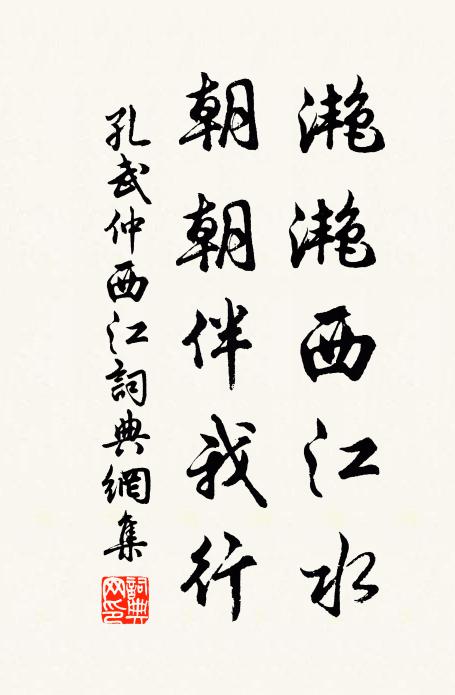 滟滟西江水
朝朝伴我行
孔武仲西江詞典網集
詞典
网印